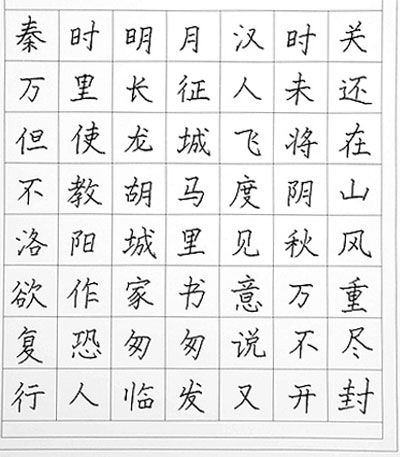 秦时明月汉时关
万里长征人未还
但使龙城飞将在
不教胡马度阴山
洛阳城里见秋风
欲作家书意万重
复恐匆匆说不尽
行人临发又开封